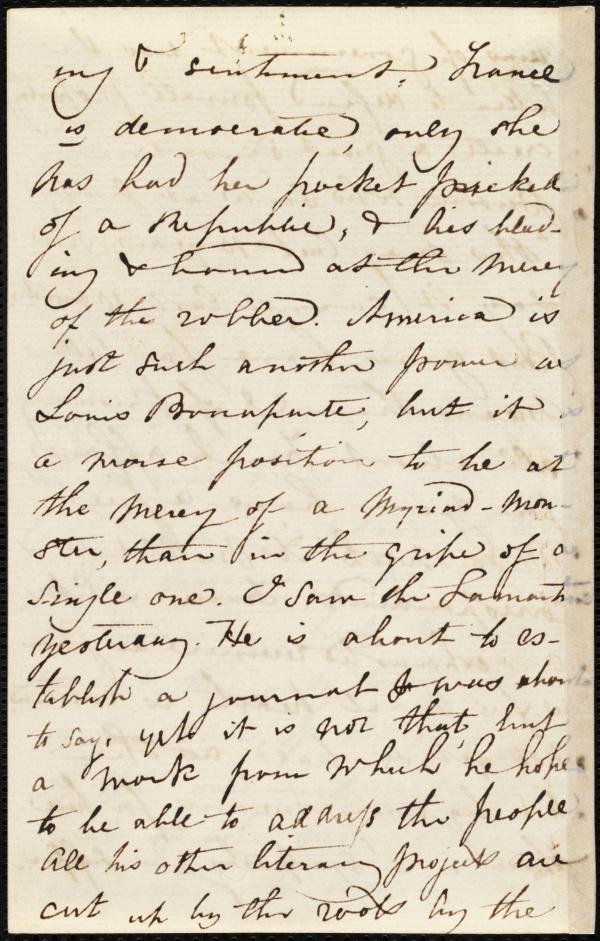 my & sentiment. France
is democratic, only she
has had her pocket picked
of a Republic, & lies bleed-
ing & bound at the mercy
of the robber. America is
just such another power as
Louis Bonaparte, but it
a worse position to be at
the mercy of a Myriad-mon-
ster, than in the gripe of a
single one. I saw the Lamart
yesterday. He is about to es-
tablish a journal I was about
to say, yet it is not that, but
a work from which he hope
to be able to address the people
All his other literary projects are
cut up by the roots by the